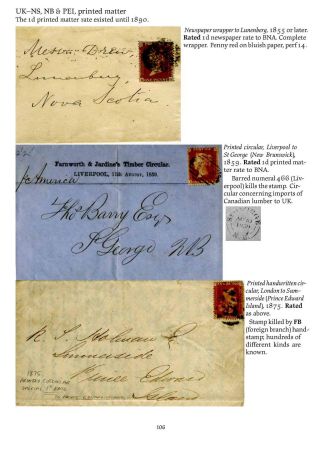 UK–NS, NB & PEI, printed matter
The 1d printed matter rate existed until 1890.
Newspaper wrapper to Lunenberg, 1855 or later.
Rated 1d newspaper rate to BNA. Complete
wrapper. Penny red on bluish paper, perf 14.
Messrs Drew
Lunenburg
Nova Scotia
Printed circular, Liverpool to
St George (New Brunswick),
1859. Rated 1d printed mat-
ter rate to BNA.
Barred numeral 466 (Liv-
erpool) kills the stamp. Cir-
cular concerning imports of
Canadian lumber to UK.
Farnworth & Jardine's Timber Circular.
LIVERPOOL, 15th August, 1859.
pr America
Thos Barry Esq
St George NB
Printed handwritten cir-
cular, London to Sum-
merside (Prince Edward
Island), 1875. Rated
as above.
Stamp killed by FB
(foreign branch) hand-
stamp; hundreds of
different kinds are
known.
Summerside
Prince Edward
Island
1875
106